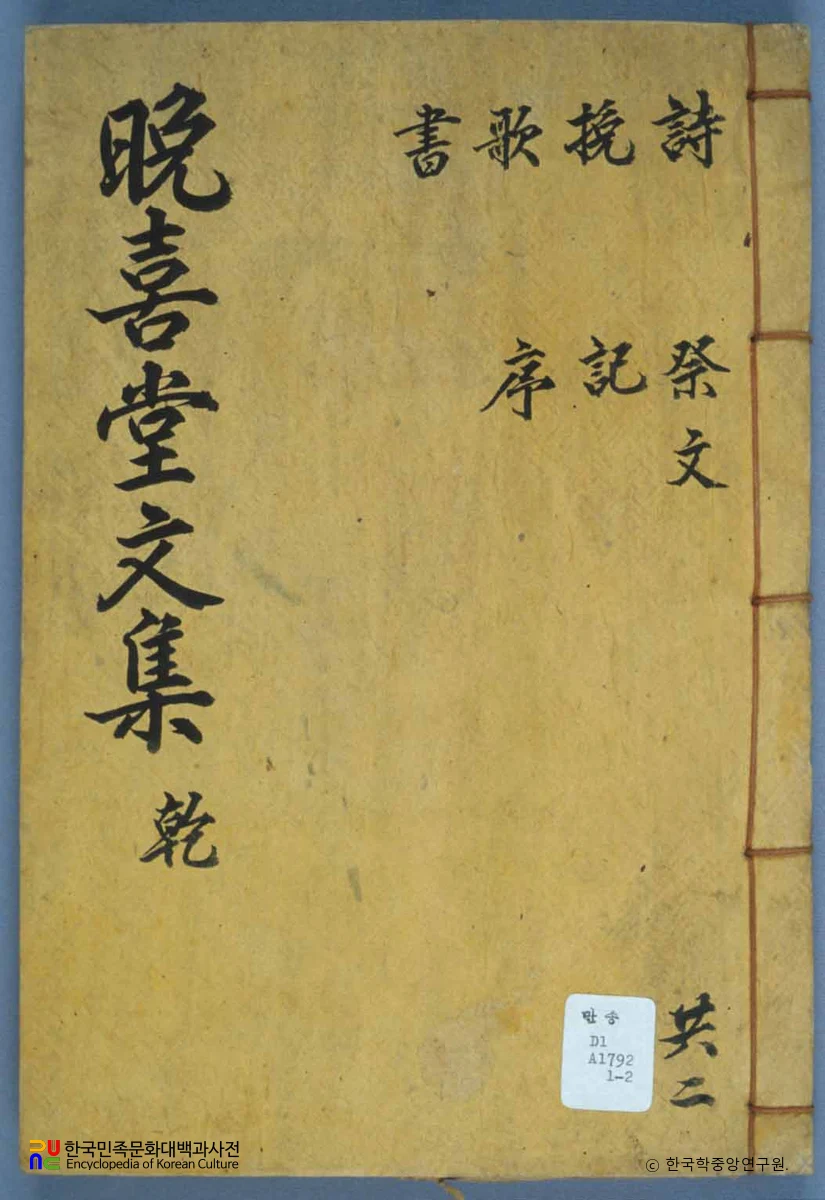 詩 祭文
挽 記
歌 序
書
晩喜堂文集 乾
共二
만송
D1
A1792
1-2
한국민족문화대백과사전
Encyclopedia of Korean Culture
ⓒ 한국학중앙연구원.